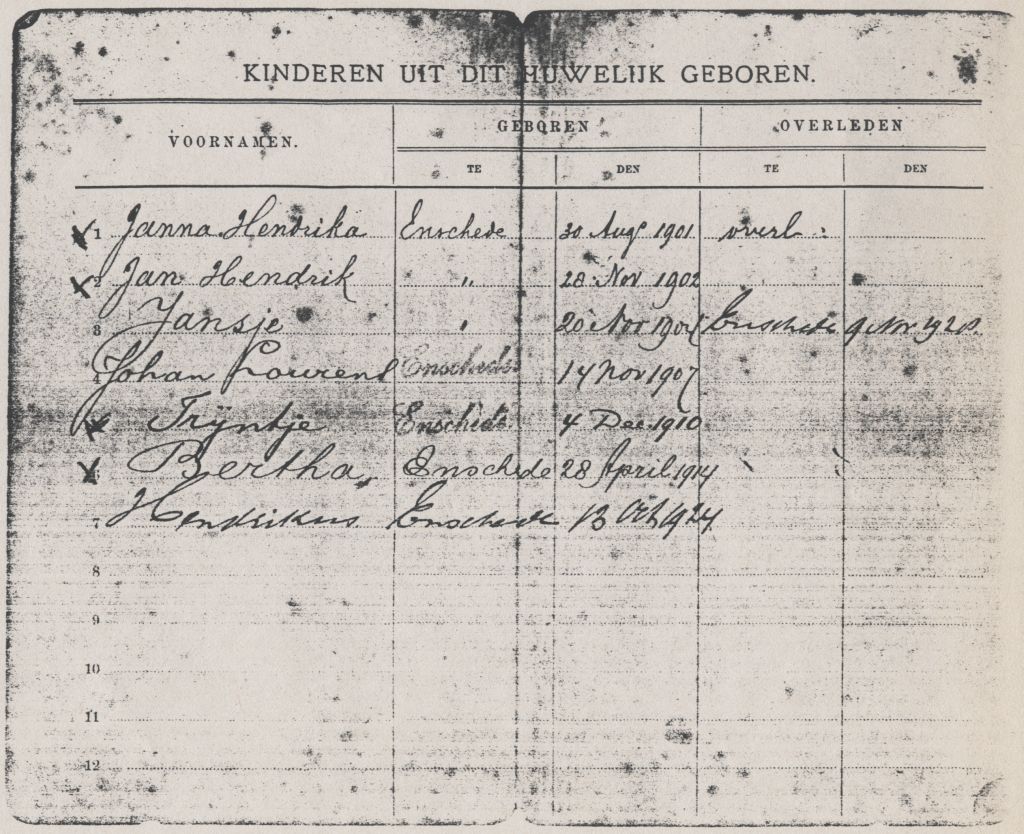 KINDEREN UIT DIT HUWELIJK GEBOREN.
VOORNAMEN. GEBOREN OVERLEDEN
TE DEN TE DEN
1 Janna Hendrika Enschede 30 Aug 1901 overl :
2 Jan Hendrik " 28 Nov 1902
3 Jansje " 20 Nov Enschede 9 Nov
4 Johan Enschede 14 Nov 1907
Trijntje Enschede 4 Dec. 1910
Bertha Enschede 28 April 1914
7 Hendrikus Enschede 13 Oct 1924
8
9
10
11
12